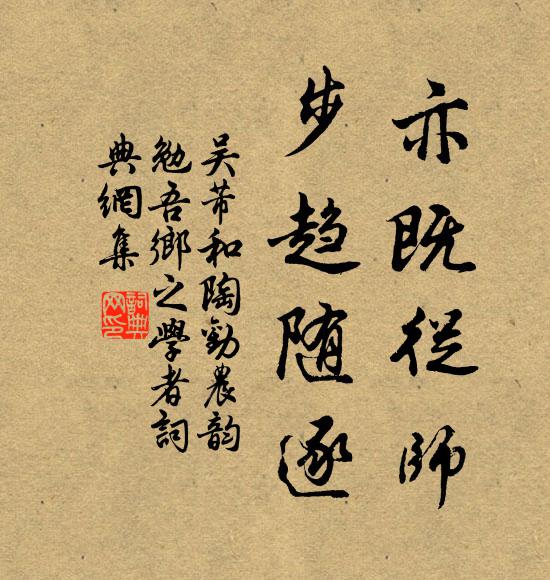 亦既從師
步趨随逐
吴芾和陶勸農韵
勉吾鄉之學者詞
典網集
詞典网印